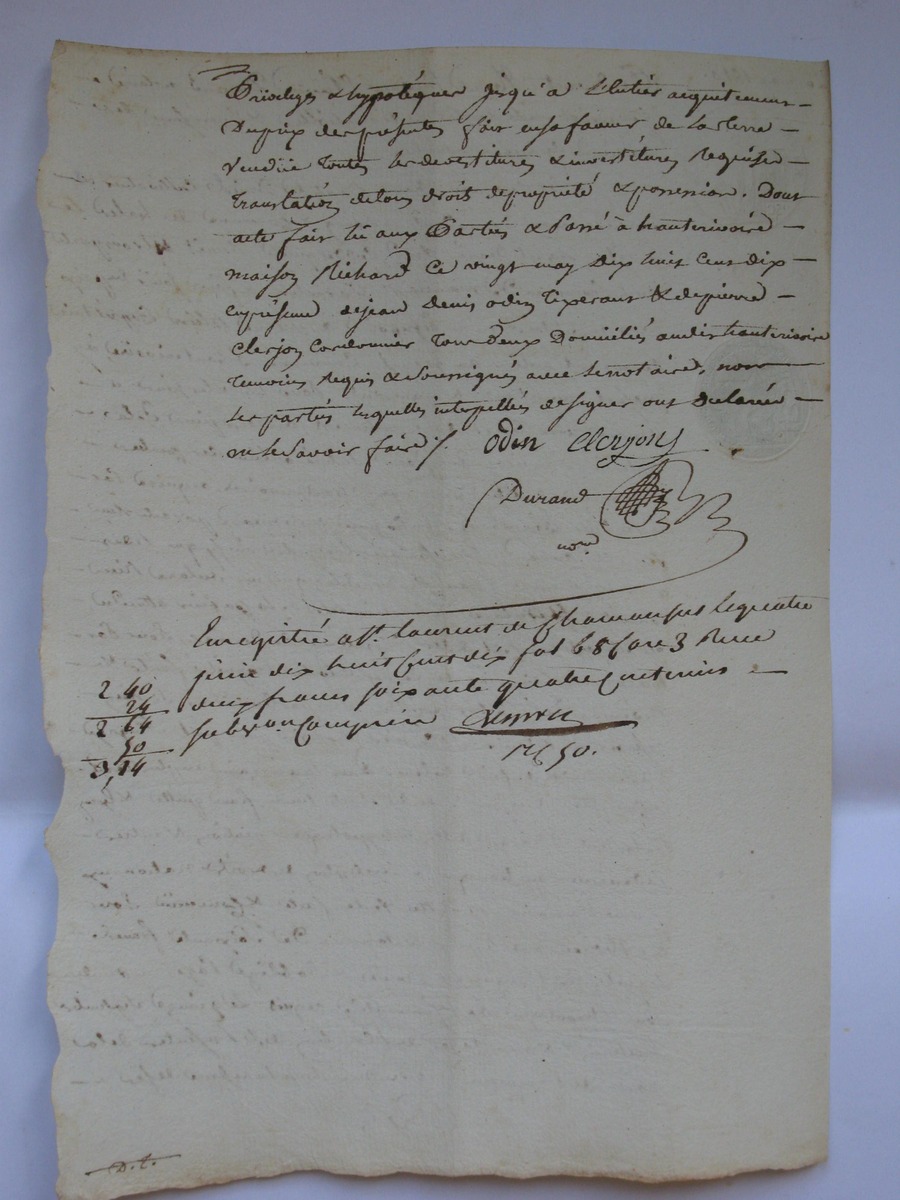 Privileges & hypotéques jusqu'a l'entier acquitement
Du prix des présentes fait en sa faveur de la terre
vendüe toutes les devestitures & investitures Requises
translation de tous droits de propriété & possession. Dont
acte fait lû aux Parties & Passé à hauterivoire
maison Richard Ce vingt may Dix huit Cent dix
en présence de jean Denis odin tixerant & de pierre
Clerjon Cordonnier tous Deux Domiciliés audit hauterivoire
temoins Requis & soussignés avec le notaire, non
les parties lesquelles interpellés de signer ont declarée
ne le savoir faire /.
odin Clerjon
Durand
nore
Enregistré a St. laurent de Chamousset le quatre
juin dix huit Cent dix fol 68 Case 3 Recu
deux francs soixante quatre Centimes
subvon Comprise
2 40
24
2 64
50
3,14
50.
D. t.